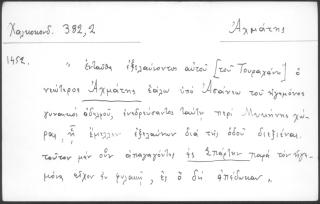 Χαλκοκονδ. 382,2
Ἀχμάτης
1452.
" ἐνταῦθα ἐξελαύνοντος αὐτοῦ [τοῦ Τουραχάνη] ὁ
νεώτερος Ἀχμάτης ἑάλω ὑπὸ Ἀσάνεω τοῦ ἡγεμόνος
γυναικὸς ἀδελφοῦ, ἐνεδρεύσαντος ταύτῃ περὶ Μυκήνης χώ-
ρας, ᾗ ἔμελλεν ἐξελαύνων διὰ τῆς ὁδοῦ διεξιέναι.
τοῦτον μὲν οὖν ἀπαγαγόντες ἐς Σπάρτην παρὰ τὸν ἡγε-
μόνα εἶχον ἐν φυλακῇ, ἐς ὃ δὴ ἀπέδωκαν "